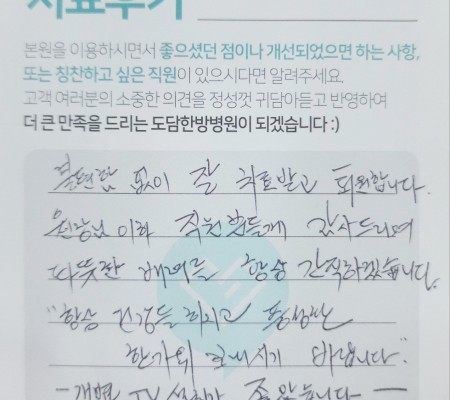 치료후기
본원을 이용하시면서 좋으셨던 점이나 개선되었으면 하는 사항,
또는 칭찬하고 싶은 직원이 있으시다면 알려주세요.
고객 여러분의 소중한 의견을 정성껏 귀담아듣고 반영하여
더 큰 만족을 드리는 도담한방병원이 되겠습니다 :)
불편함 없이 잘 치료받고 퇴원합니다.
원장님 이하 직원분들께 감사드리며
따뜻한 배려를 항상 간직하겠습니다.
"항상 건강들 하시고 풍성한
한가위 보내시기 바랍니다."
- 개별 TV 설치가 좋았습니다 -